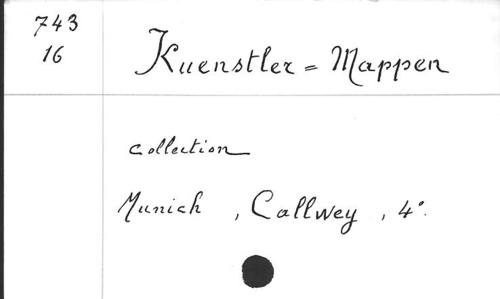 743
16
Kuenstler = Mappen
collection
Munich, Callwey, 4°.